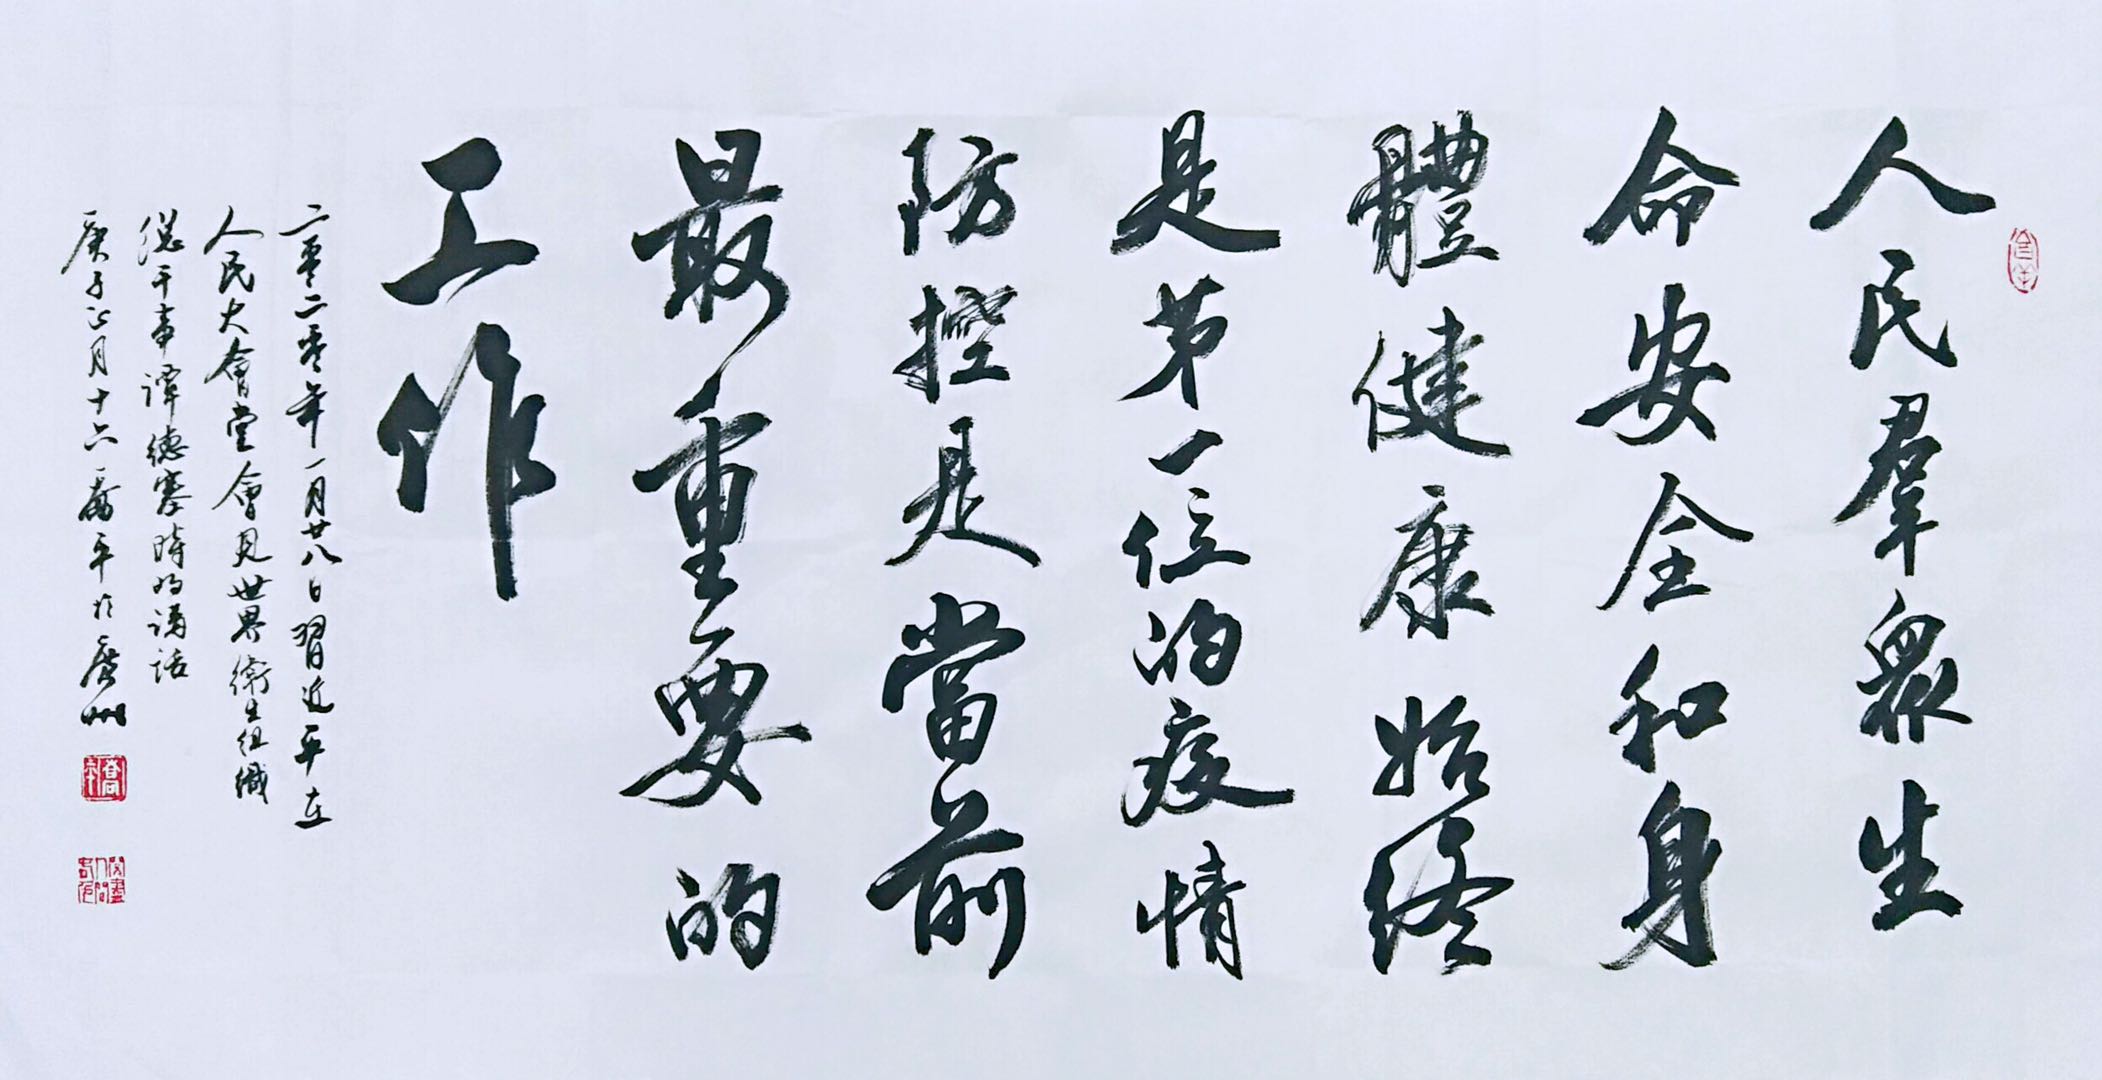 人民羣眾生
命安全和身
體健康始終
是第一位的疫情
防控是當前
最重要的
工作
二零二零年一月廿八日習近平在
人民大會堂會見世界衛生組織
總干事譚德塞時的講話
庚子正月十六喬平於廣州
喬平